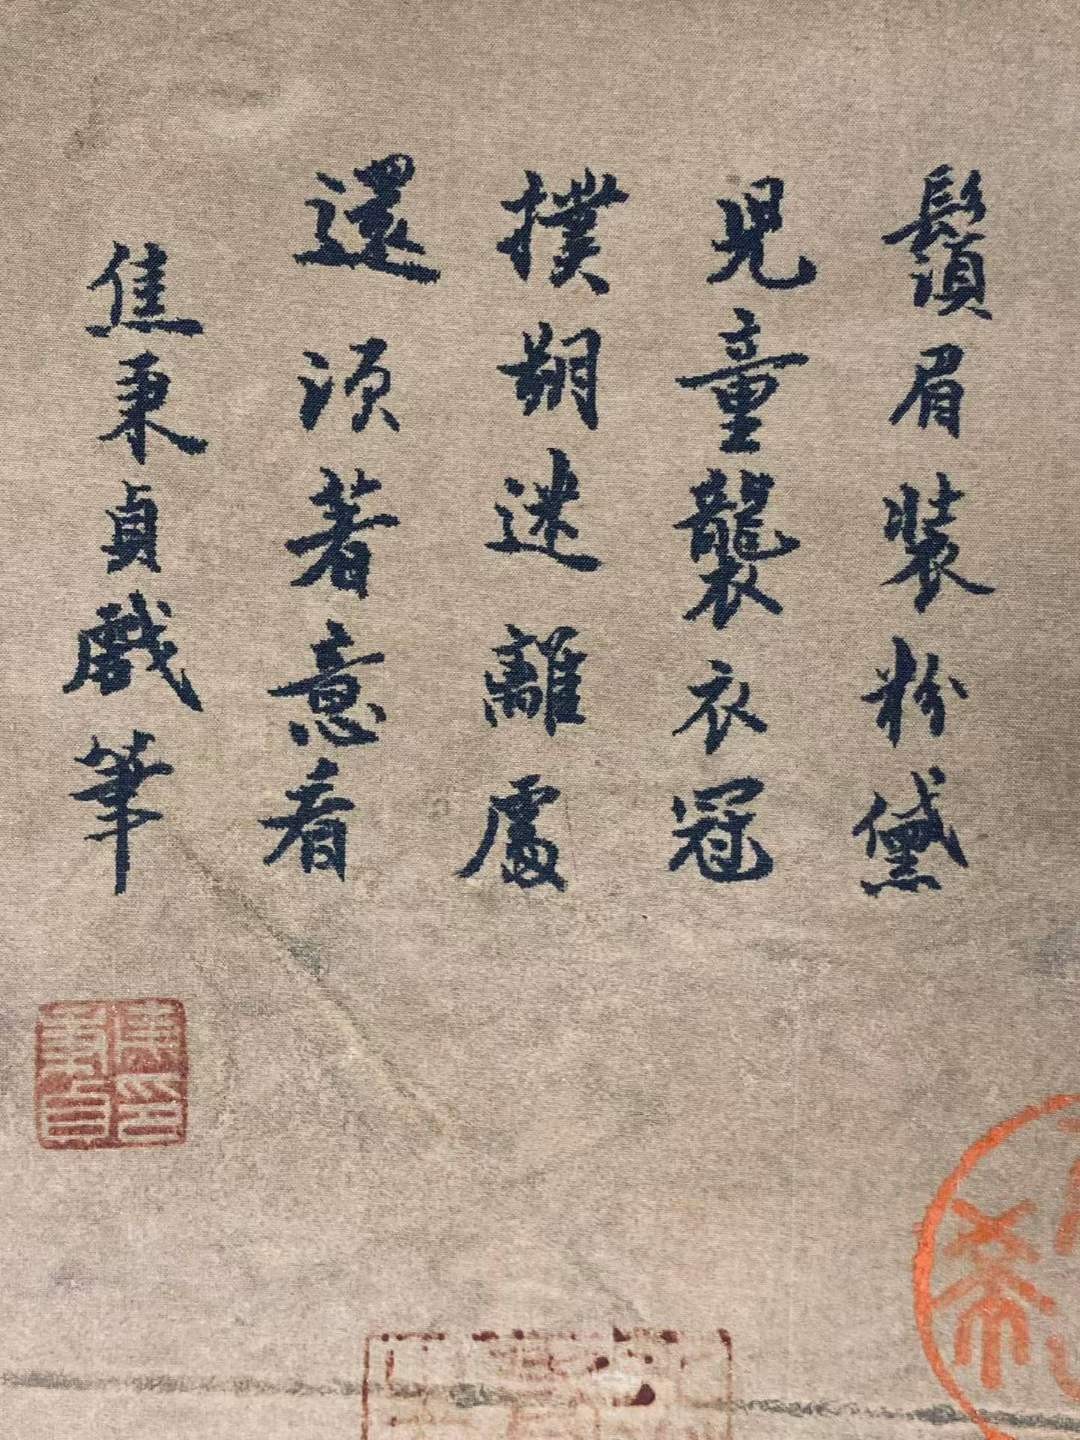 鬚眉裝粉黛
兒童襲衣冠
撲朔迷離處
還須著意看
焦秉貞戲筆
焦秉貞印